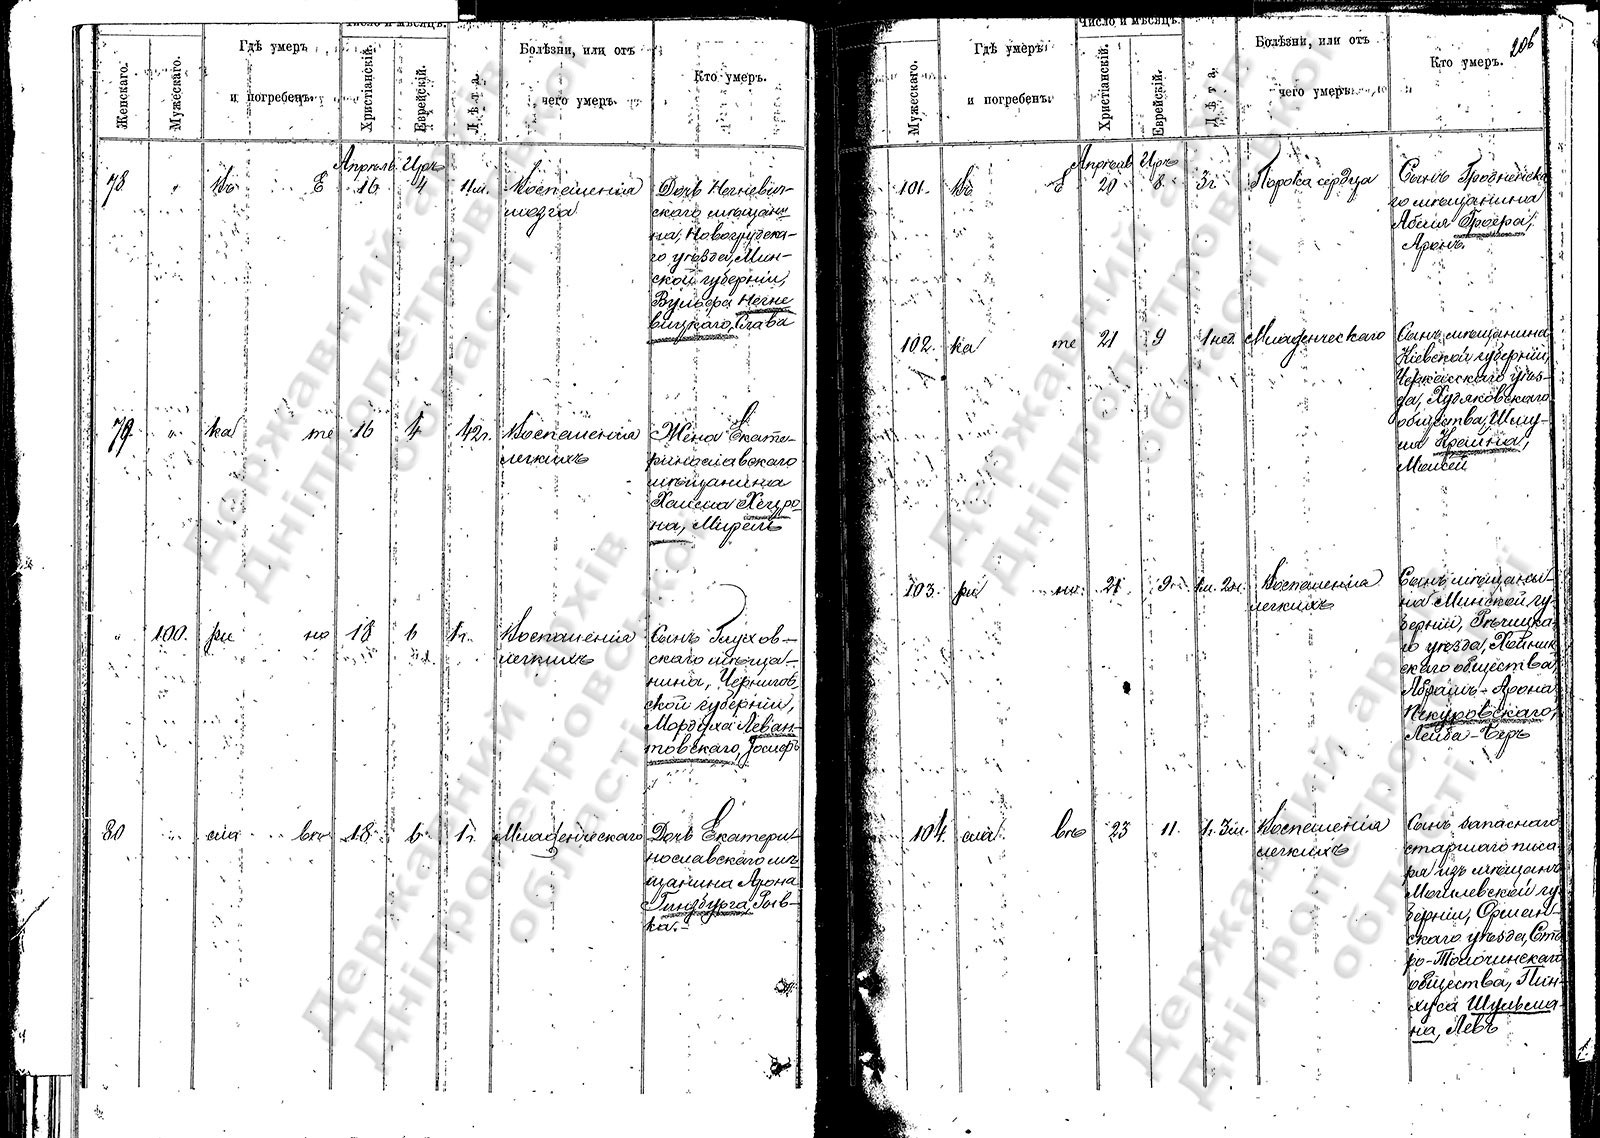 Число и мѣсяцъ.
Женскаго.
Мужескаго.
Гдѣ умеръ
и погребенъ.
Христіанскій.
Еврейскій.
Лѣта.
Болѣзни, или отъ
чего умеръ.
Кто умеръ.
Апрѣль Иръ
78 " Въ Е 16 4 11м. Воспаленія
мозга
Дочь Негневич-
скаго мѣщани
на, Новогрудска-
го уѣзда, Мин-
ской губерніи,
Вульфа Негне
вицкаго, Слава
79 " ка те 16 4 42г. Воспаленія
легкихъ
Жена Екате-
ринославскаго
мѣщанина
Хаима Хецро
на, Мирель
" 100. ри но 18 6 1г. Воспаленія
легкихъ
Сынъ Глухов-
скаго мѣща-
нина, Чернигов
ской губерніи,
Мордуха Леван-
товскаго, Іосифъ
80 " сла вѣ 18 6 1г. Младенческаго
Дочь Екатери-
нославскаго мѣ
щанина Арона
Гинзбурга, Рив-
ка.-
206
Число и мѣсяцъ.
Мужескаго.
Гдѣ умеръ
и погребенъ
Христіанскій.
Еврейскій.
Лѣта.
Болѣзни, или отъ
чего умеръ.
Кто умеръ.
Апрѣль Иръ
101. Въ Е 20 8 3г. Порока сердца
Сынъ Гродненска
го мѣщанина
Абеля Гроера,
Аронъ.
102. ка те 21 9 1нед. Младенческаго
Сынъ мѣщанина
Кіевской губерніи
Черкасскаго уѣз-
да, Худяковскаго
общества, Шму-
ля Крайна,
Моисей
103. ри но 21 9 1м. 2н. Воспаленія
легкихъ
Сынъ мѣщани-
на Минской гу-
берніи, Рѣчицка-
го уѣзда, Хойник
скаго общества,
Абрамъ-Арона
Пекуровскаго,
Лейба-Беръ
104. сла вѣ 23 11. 1г. 3м. Воспаленія
легкихъ
Сынъ запаснаго
старшаго писа-
ря изъ мѣщанъ
Могилевской гу
берніи, Оршан-
скаго уѣзда, Ста
ро-Толочинскаго
общества, Пин-
хуса Шульма-
на, Левъ
Державний архів
Дніпропетровської
області